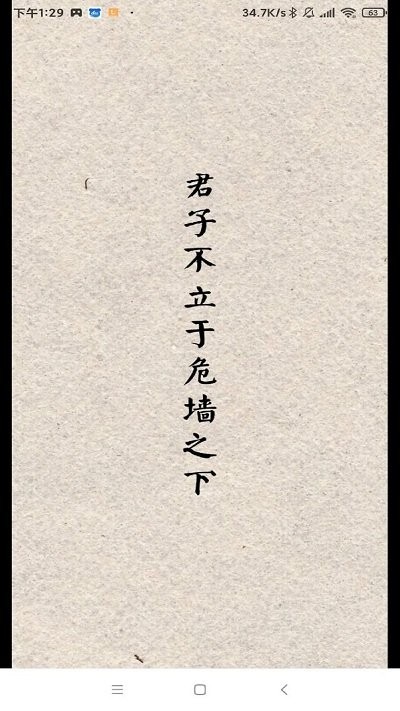 下午1:29
34.7K/s
63
君子不立于危墙之下